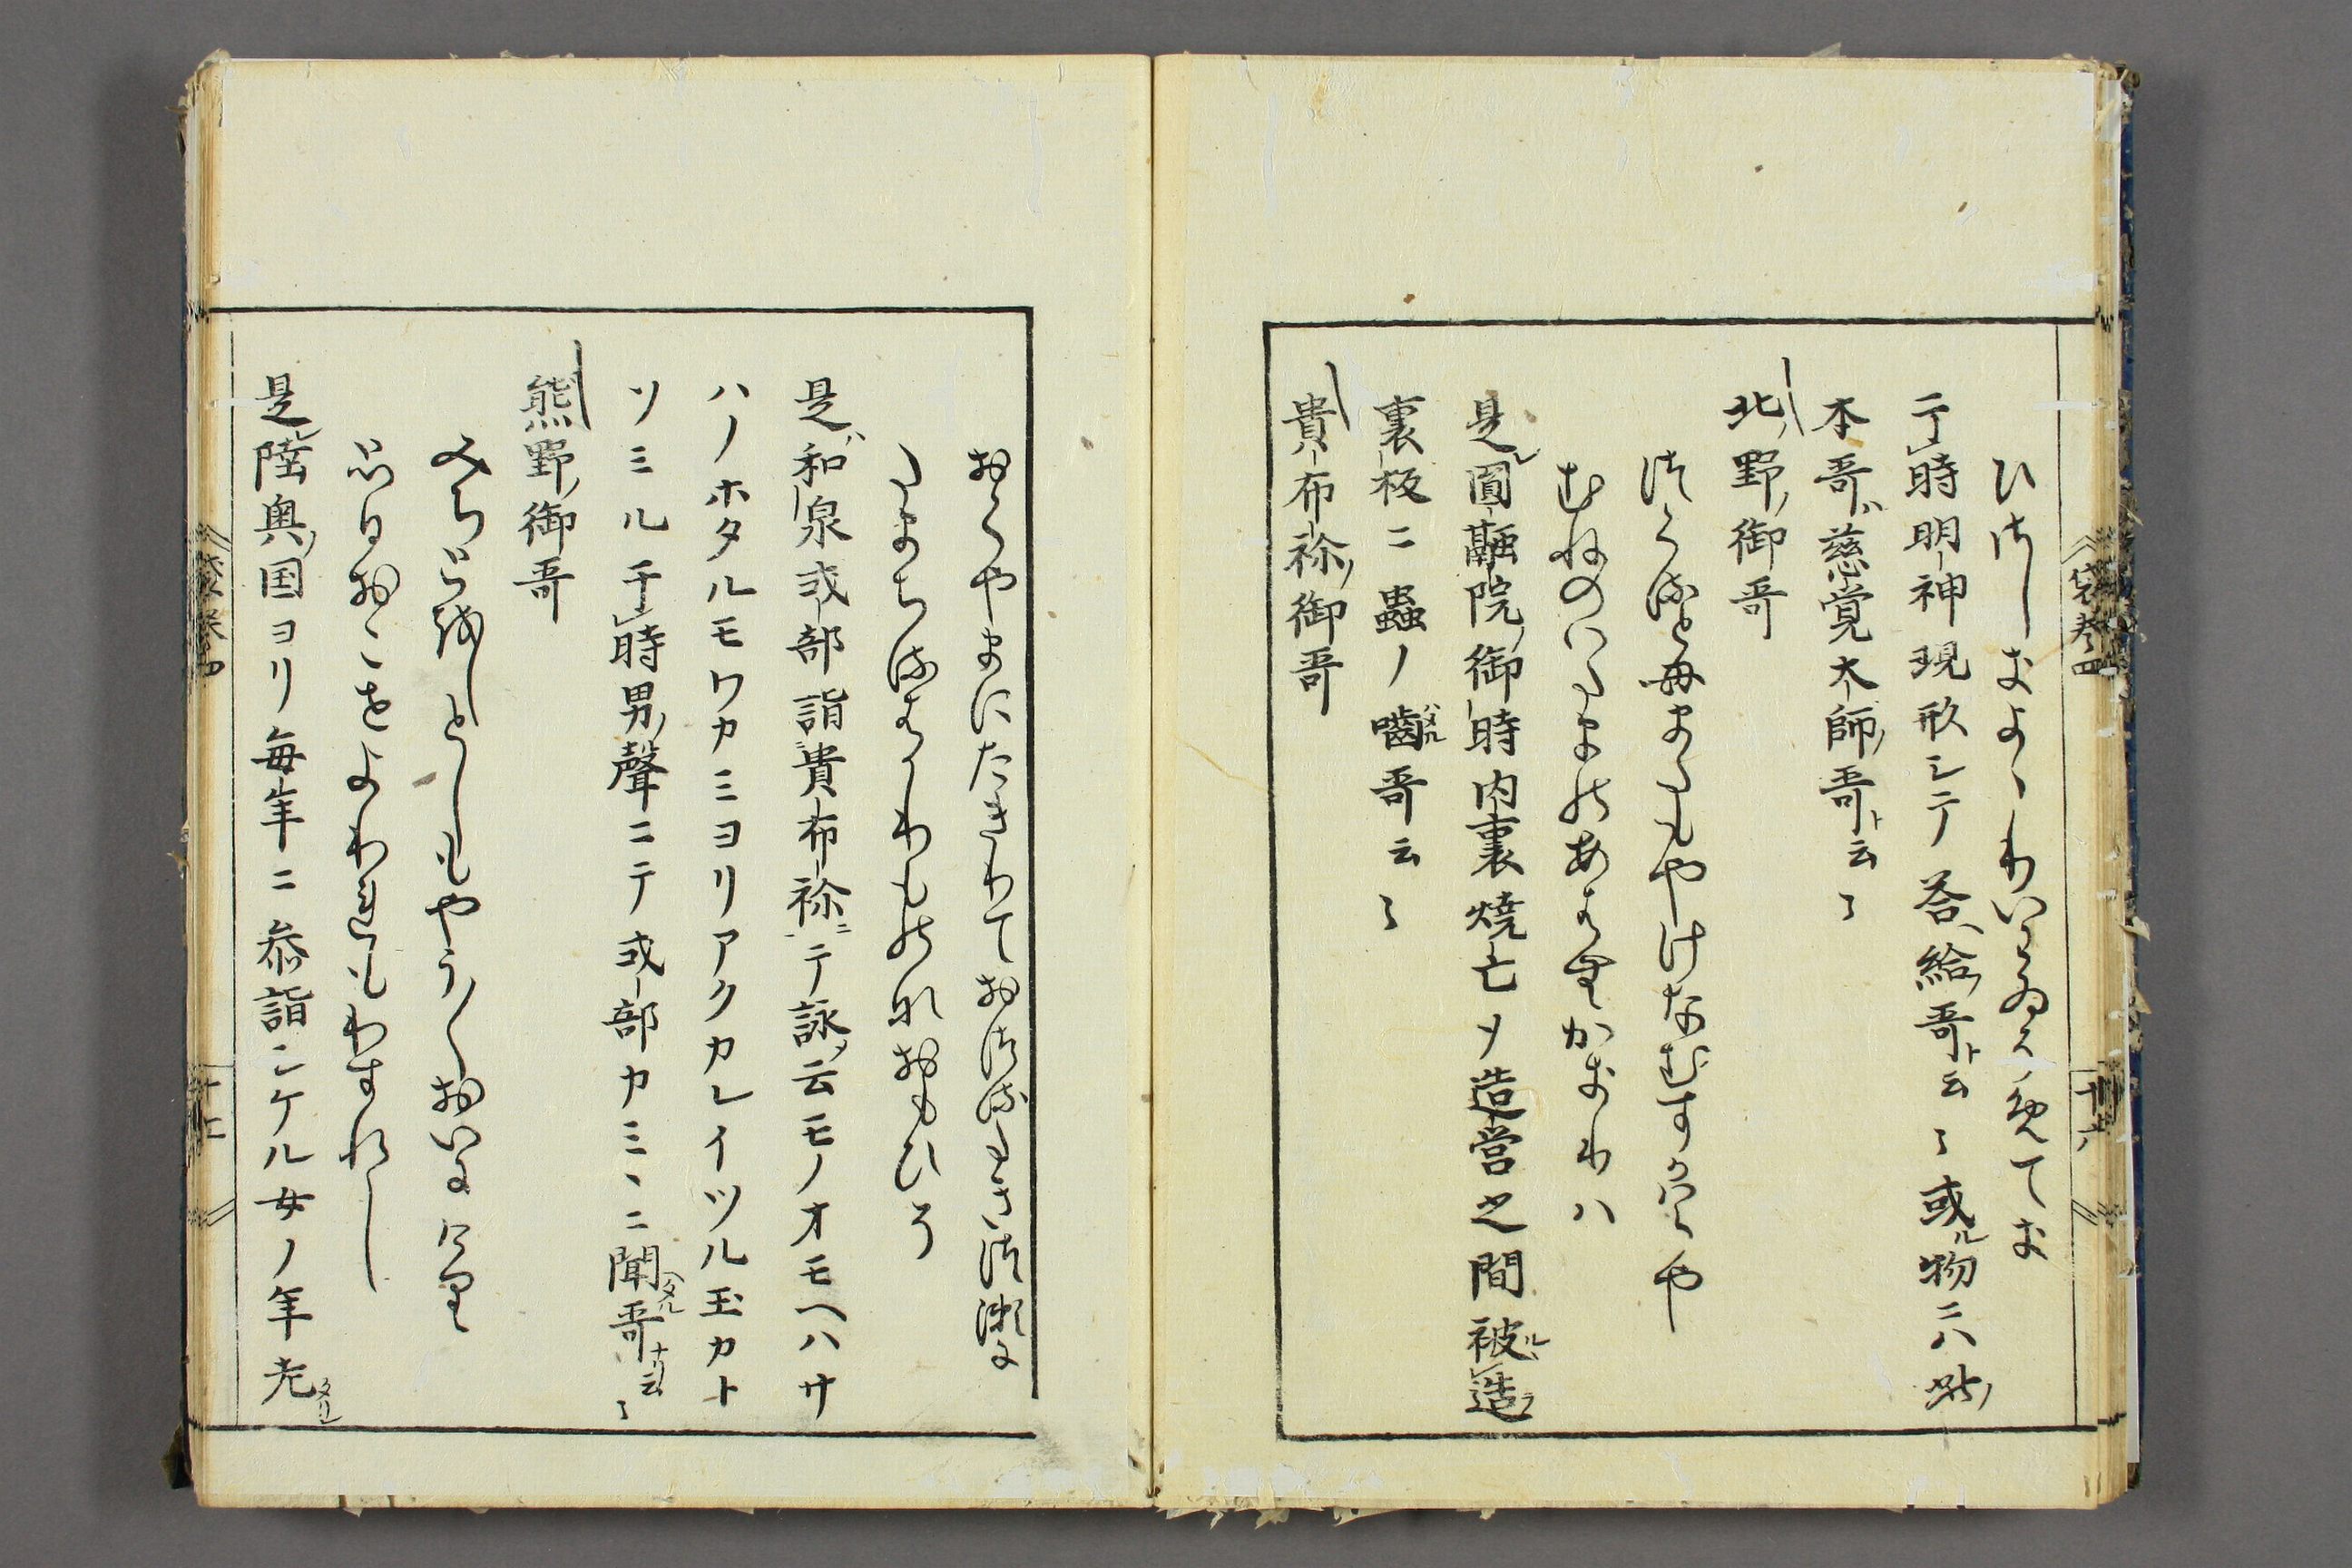 袋巻四
十六
ひさしきよゝりいはゐそめてき
于時明神現形シテ答給哥ト云々或ル物ニハ此ノ
本哥ハ慈覚大師ノ哥ト云々
北野ノ御哥
つくるともまたもやけなむすかはらや
むねのいたまのあはぬかきりハ
是レ圓融院ノ御時内裏焼亡ソ造営之間被ルヽ造ラ
裏板ニ蟲ノ噛ハメル哥云々
貴布祢ノ御哥
おくやまにたきりておつるたきつ瀬に
たまちるはかりものなおもひそ
是ハ和泉式部詣貴布祢ニテ詠ソ云モノオモヘハサ
ハノホタルモワカミヨリアクカレイツル玉カト
ソミル于時男ノ聲ニテ式部カミヽニ聞ヘタル哥ナリ云々
熊野ノ御哥
みちとをしとしもやう〳〵おいにけり
思ひおこせよわれもわすれし
是レ陸奥ノ国ヨリ毎年ニ参詣シケル女ノ年老タリシ
袋巻四
十七